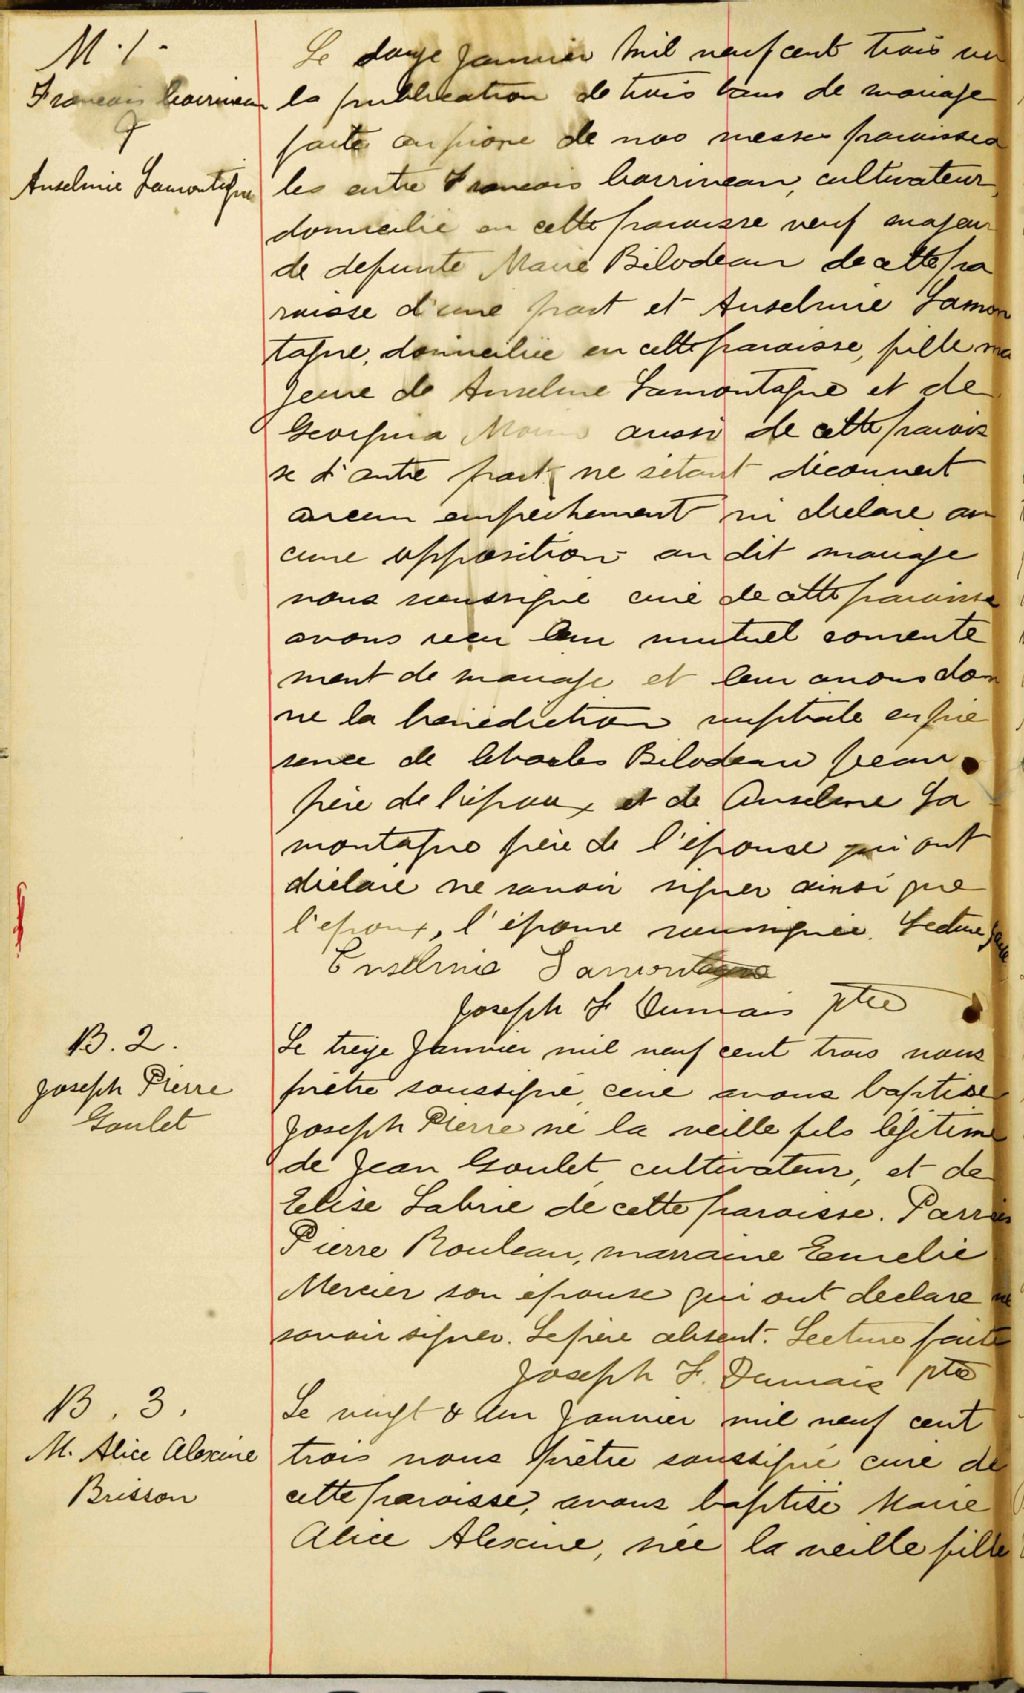 M. 1.
François Corriveau
&
Anselmie Lamontagne
Le douze Janvier mil neuf cent trois vu
la publication de trois bans de mariage
faite au prone de nos messes paroissia
les entre François Corriveau, cultivateur,
domicilié en cette paroisse veuf majeur
de defunte Marie Bilodeau de cette pa
roisse d'une part et Anselmie Lamon
tagne, domiciliée en cette paroisse, fille ma
jeure de Anselme Lamontagne et de
Georgina Morin aussi de cette parois
se d'autre part, ne s'étant découvert
aucun empêchement ni declaré au
cune opposition au dit mariage
nous soussigné curé de cette paroisse
avons reçu leur mutuel consente
ment de mariage et leur avons don
né la bénédiction nuptiale en pré
sence de Charles Bilodeau beau
père de l'époux et de Anselme La
montagne père de l'épouse qui ont
déclaré ne savoir signer ainsi que
l'époux, l'épouse soussignée. Lecture faite
Enselmie Lamontagne
Joseph F Dumais ptre
B. 2.
Joseph Pierre
Goulet
Le treize Janvier mil neuf cent trois nous
prêtre soussigné, curé avons baptisé
Joseph Pierre né la veille fils légitime
de Jean Goulet, cultivateur, et de
Elise Labrie de cette paroisse. Parrain
Pierre Rouleau, marraine Emelie
Mercier son épouse qui ont declaré ne
savoir signer. Le père absent. Lecture faite
Joseph F. Dumais ptre
B. 3.
M. Alice Alexine
Brisson
Le vingt & un Janvier mil neuf cent
trois nous prêtre soussigné curé de
cette paroisse, avons baptisé Marie
Alice Alexine, née la veille fille